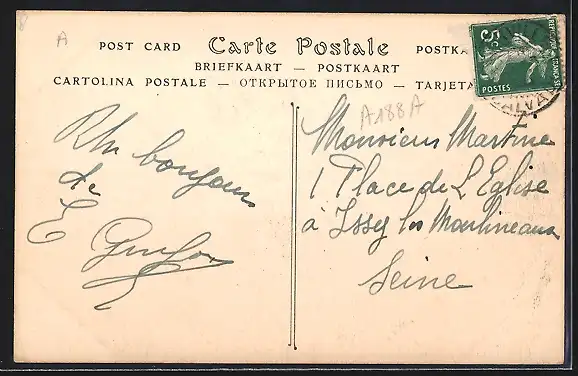 A
POST CARD Carte Postale POSTKA
BRIEFKAART — POSTKAART
CARTOLINA POSTALE — ОТКРЫТОЕ ПИСЬМО — TARJETA
5c
POSTES
CALVA
A188A
bonjour
de
E
Monsieur Martine
1 Place de L'Eglise
à Issy les Moulineaux
Seine